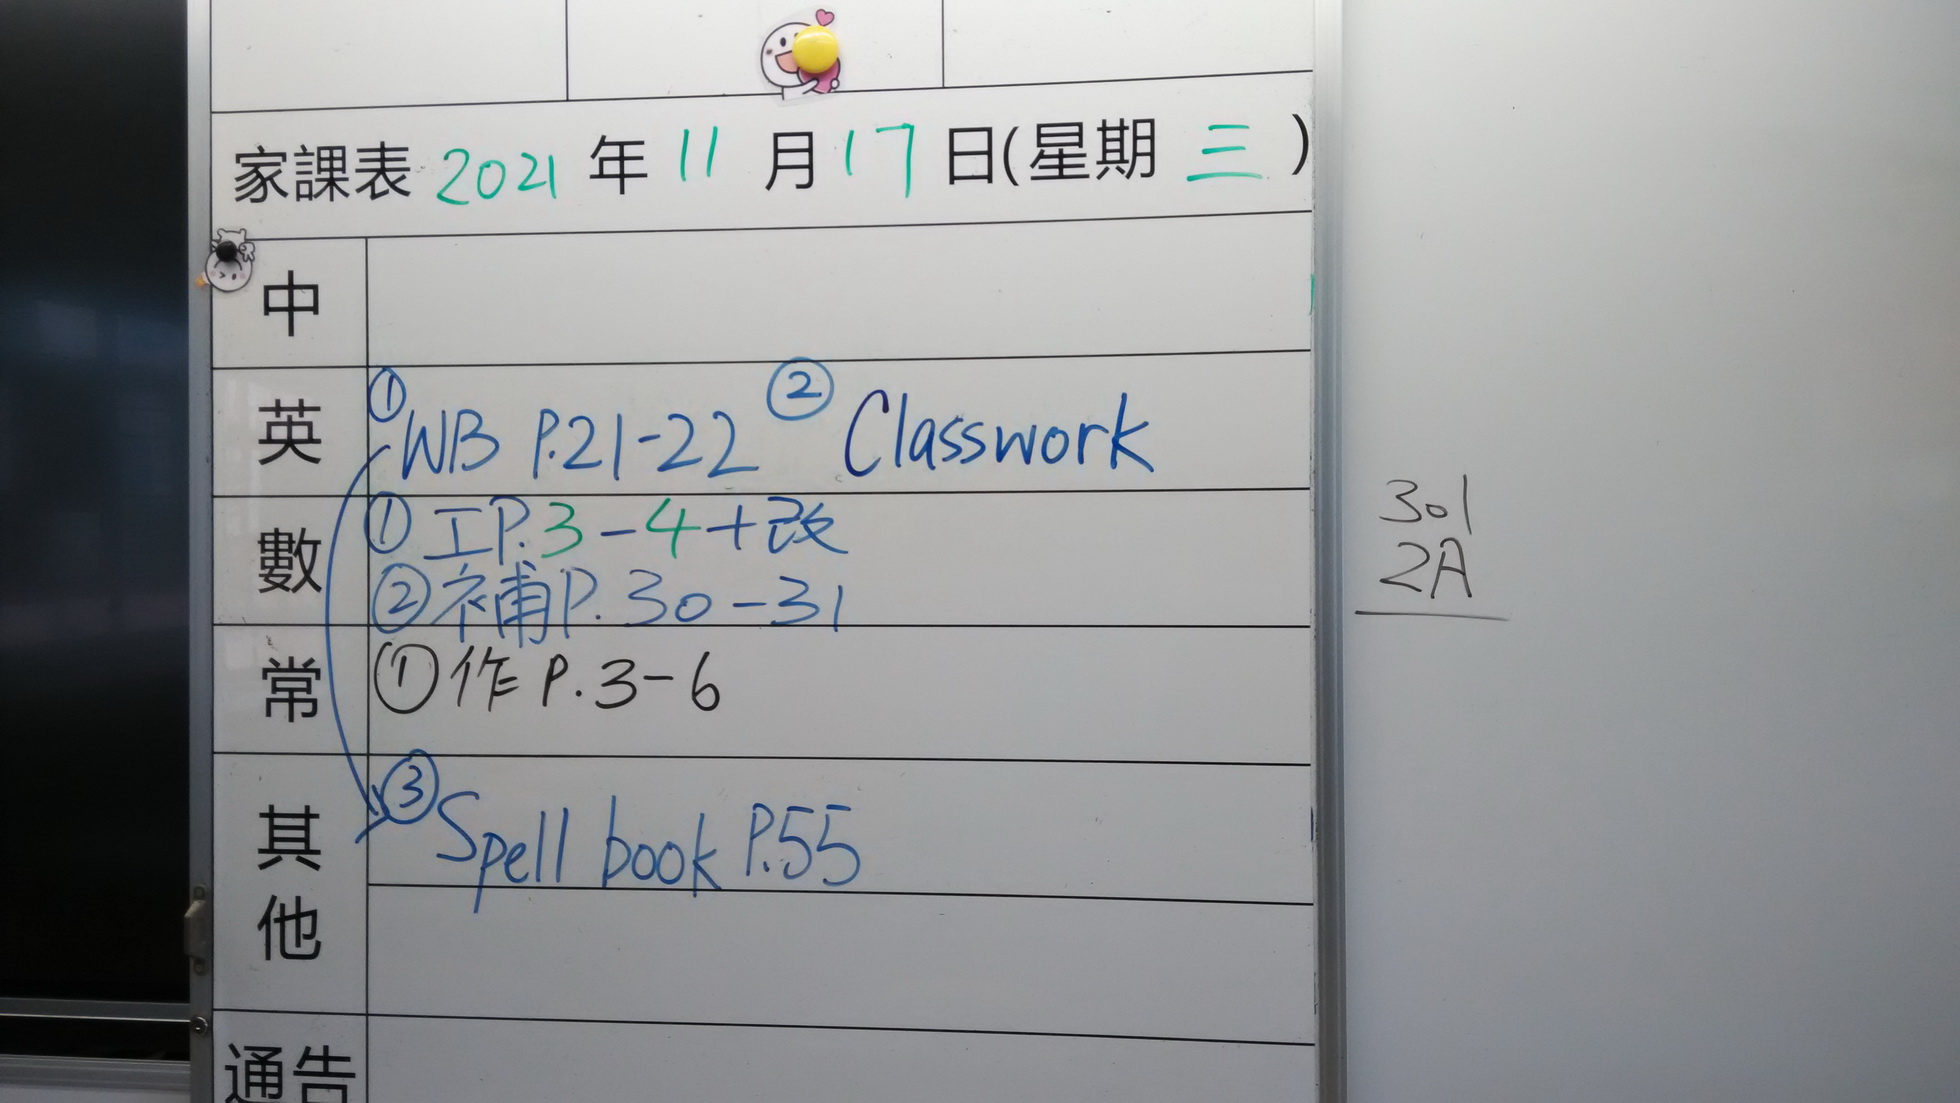 家課表 2021 年 11 月 17 日(星期 三 )
中
英 ① WB P.21-22 ② Classwork
數 ① 工P.3-4+改
② 補P.30-31
常 ① 作 P.3-6
其他 ③ Spell book P.55
通告
301
2A